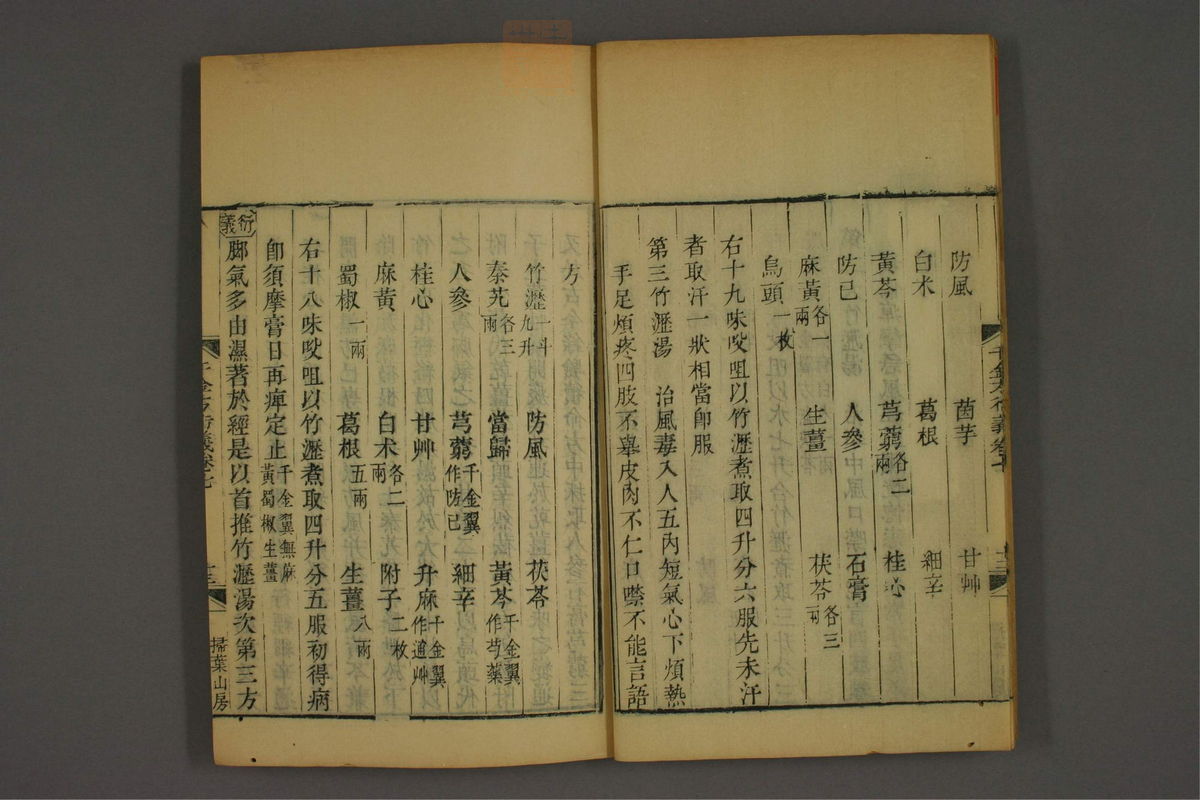 千金方衍義卷七
十二
防風 茵芋 甘艸
白朮 葛根 細辛
黃芩 芎藭各二兩 桂心
防已 人參 石膏
麻黃各一兩 生薑 茯苓各三兩
烏頭一枚
右十九味㕮咀以竹瀝煮取四升分六服先未汗
者取汗一狀相當卽服
第三竹瀝湯 治風毒入人五內短氣心下煩熱
手足煩疼四肢不舉皮肉不仁口噤不能言語
方
竹瀝一斗九升 防風 茯苓
秦艽各三兩 當歸 黃芩千金翼作芍藥
人參 芎藭千金翼作防已 細辛
桂心 甘艸 升麻千金翼作通艸
麻黃 白朮各二兩 附子二枚
蜀椒一兩 葛根五兩 生薑八兩
右十八味㕮咀以竹瀝煮取四升分五服初得病
卽須摩膏日再痺定止千金翼無麻黃蜀椒生薑
衍義
腳氣多由濕著於經是以首推竹瀝湯次第三方
千金方衍義卷七
十三
掃葉山房